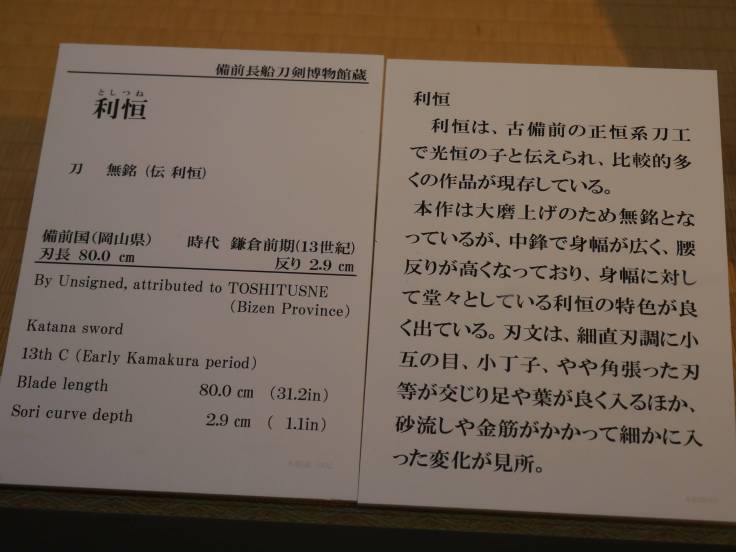 備前長船刀剣博物館蔵
としつね
利恒
刀 無銘(伝 利恒)
備前国(岡山県) 時代 鎌倉前期(13世紀)
刃長 80.0 cm 反り 2.9 cm
By Unsigned, attributed to TOSHITUSNE
(Bizen Province)
Katana sword
13th C (Early Kamakura period)
Blade length 80.0 cm (31.2in)
Sori curve depth 2.9 cm ( 1.1in)
利恒
利恒は、古備前の正恒系刀工
で光恒の子と伝えられ、比較的多
くの作品が現存している。
本作は大磨上げのため無銘とな
っているが、中鋒で身幅が広く、腰
反りが高くなっており、身幅に対し
て堂々としている利恒の特色が良
く出ている。刃文は、細直刃調に小
互の目、小丁子、やや角張った刃
等が交じり足や葉が良く入るほか、
砂流しや金筋がかかって細かに入
った変化が見所。